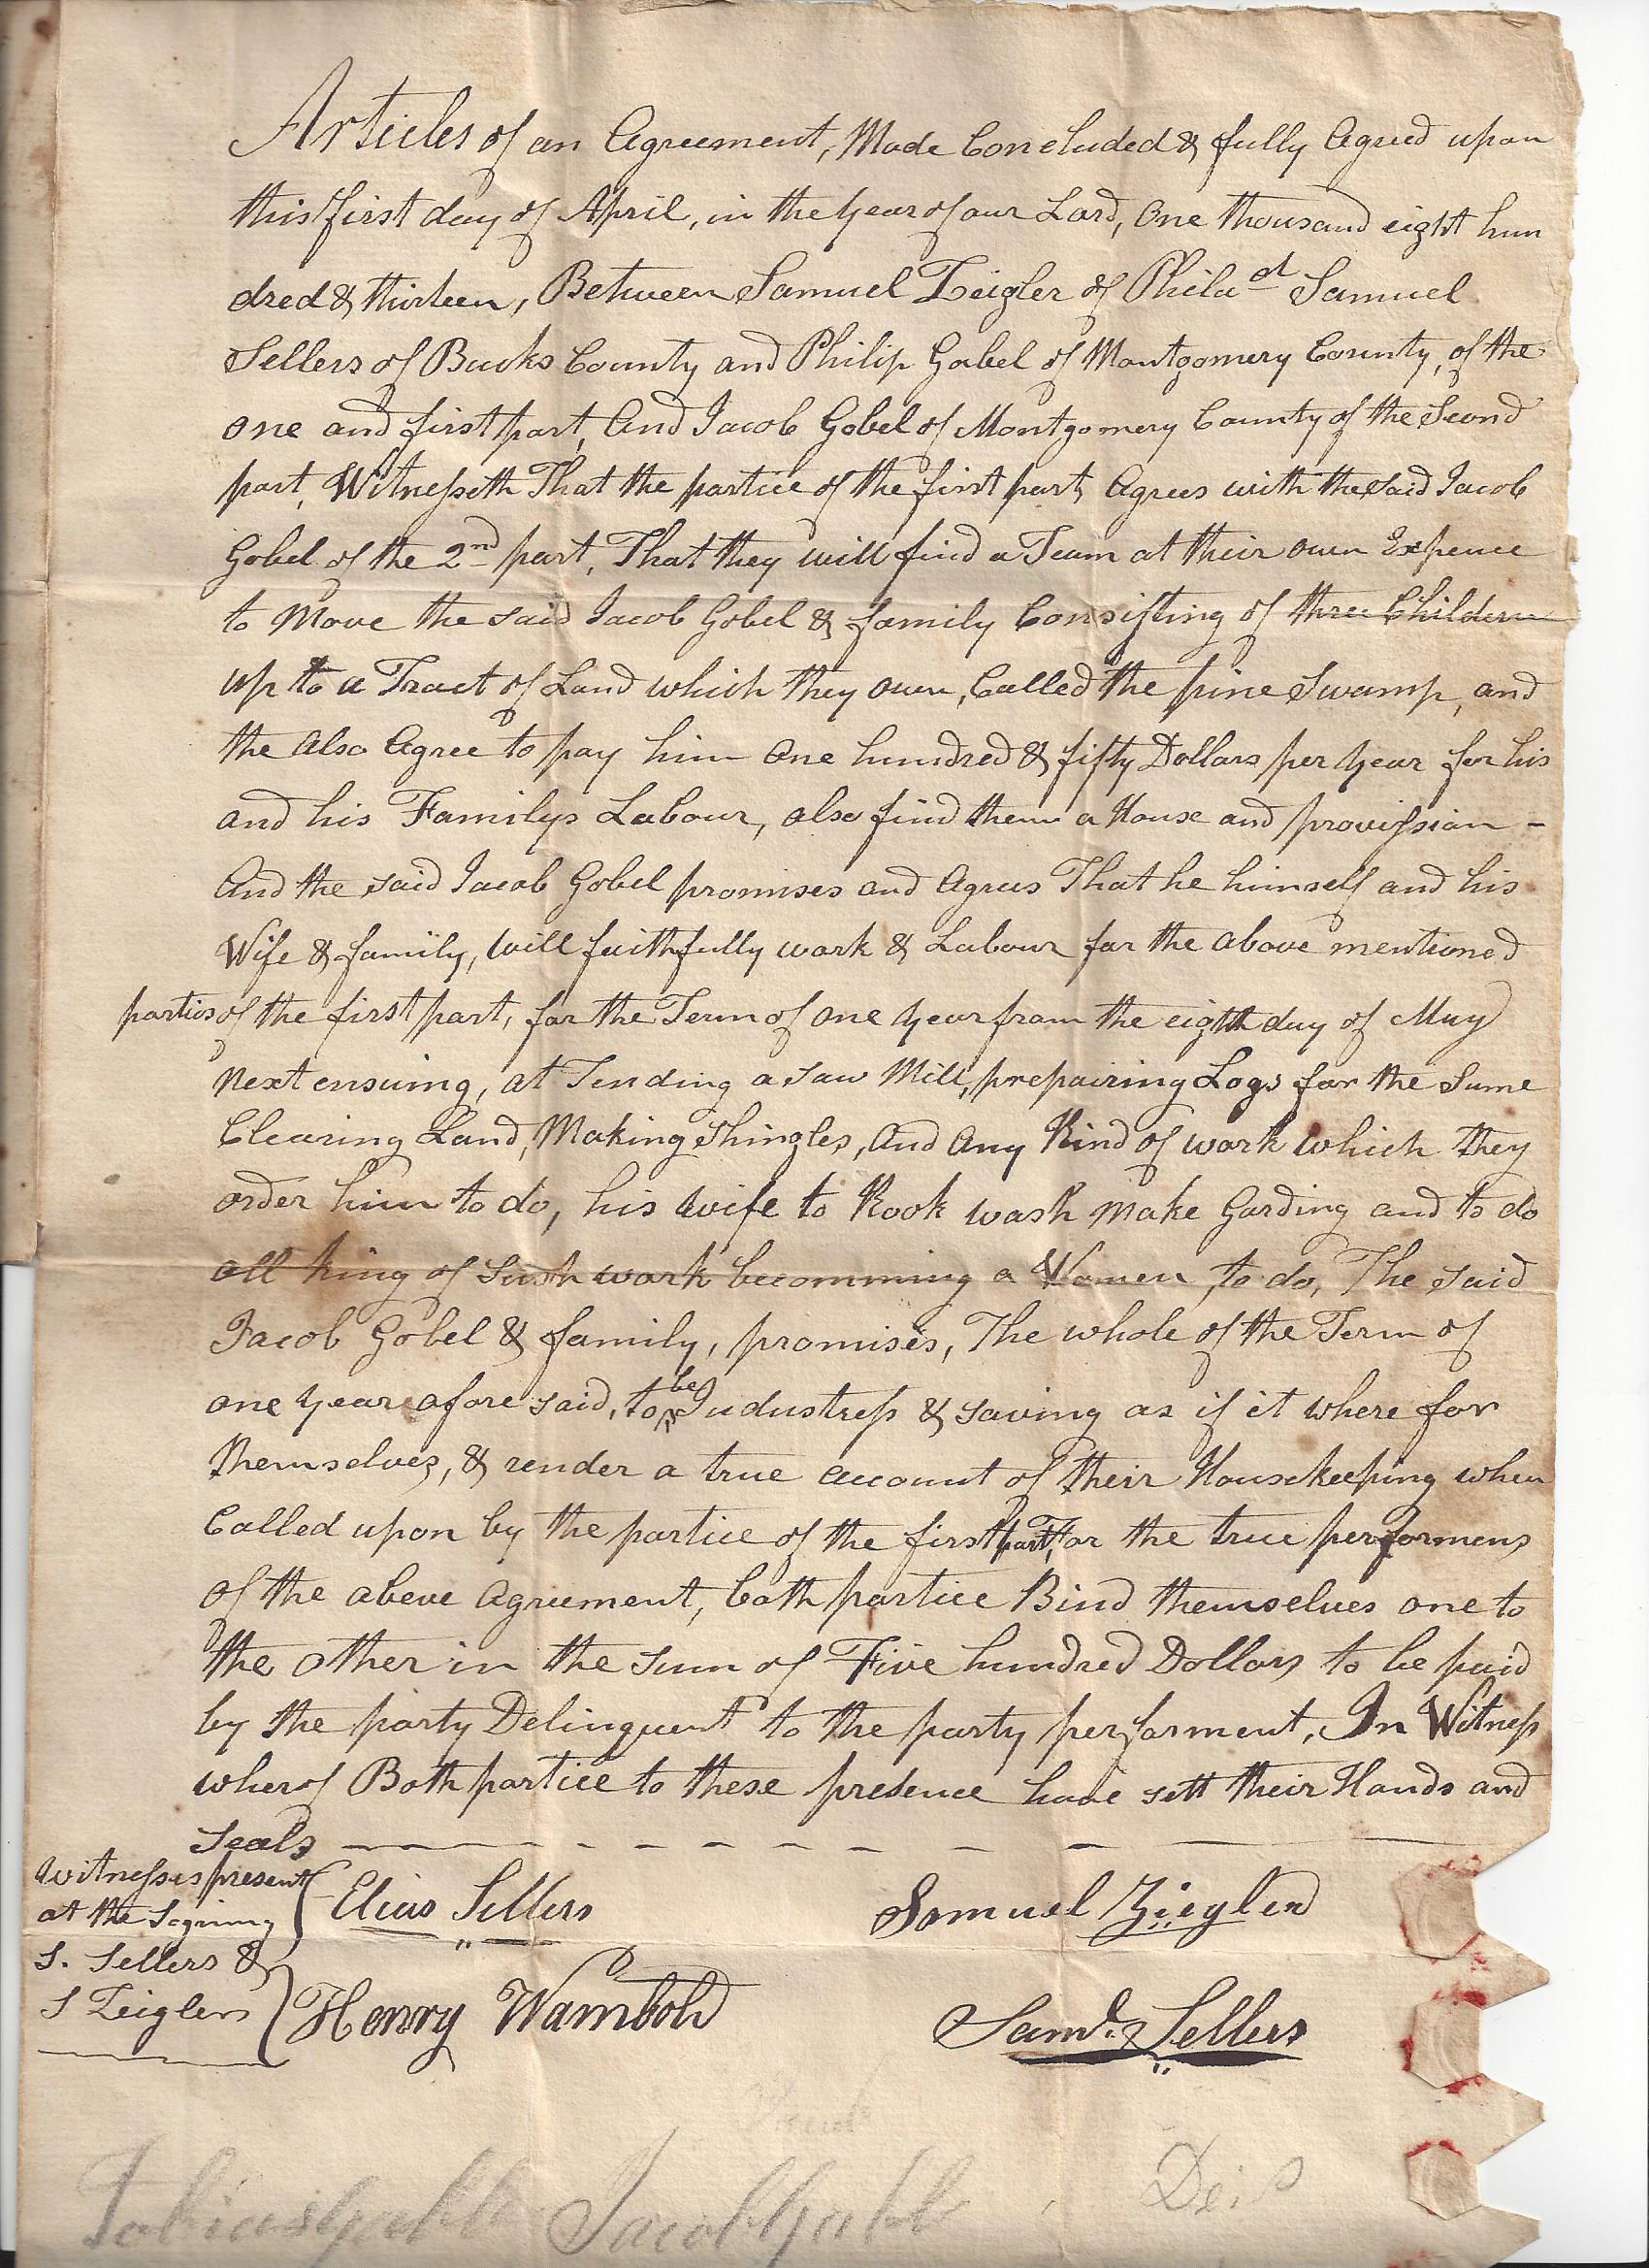 Articles of an Agreement, Made Concluded & fully Agreed upon
this first day of April, in the year of our Lord, One thousand eight hun
dred & thirteen, Between Samuel Zeigler of Philad Samuel
Sellers of Bucks County and Philip Gobel of Montgomery County, of the
one and first part, And Jacob Gobel of Montgomery County of the Second
part, Witnesseth That the partice of the first part, Agrees with the said Jacob
Gobel of the 2nd part, That they will find a Team at their own Expence
to Move the said Jacob Gobel & family Consisting of three Childern
up to a Tract of Land which they own, Called the pine Swamp, and
the also Agree to pay him One hundred & fifty Dollars per year for his
and his Familys Labour, also find them a House and provission -
And the said Jacob Gobel promises and Agrees That he himself and his
Wife & family, will faithfully work & Labour for the above mentioned
parties of the first part, for the Term of one year from the eighth day of May
Next ensuing, at Tending a saw Mill, prepairing Logs for the Same
Clearing Land, Making Shingles, And Any Kind of work which they
order him to do, his wife to Kook wash Make Garding and to do
all king of Sush work becomming a Women to do, The said
Jacob Gobel & family, promises, The whole of the Term of
one year afore said, to be Industress & saving as if it where for
themselves, & render a true account of their Housekeeping when
Called upon by the partice of the first part, For the true performens
of the above Agreement, both partice Bind themselves one to
the other in the sum of Five hundred Dollars to be paid
by the party Delinquent to the party performent, In Witness
wherof Both partice to these presence have sett their Hands and
Seals
Witnesses present
at the Signing
S. Sellers &
S Zeigler
Elias Sellers
Samuel Ziegler
Henry Wambold
Saml. Sellers
Tobias Gabll Jacob Gabll